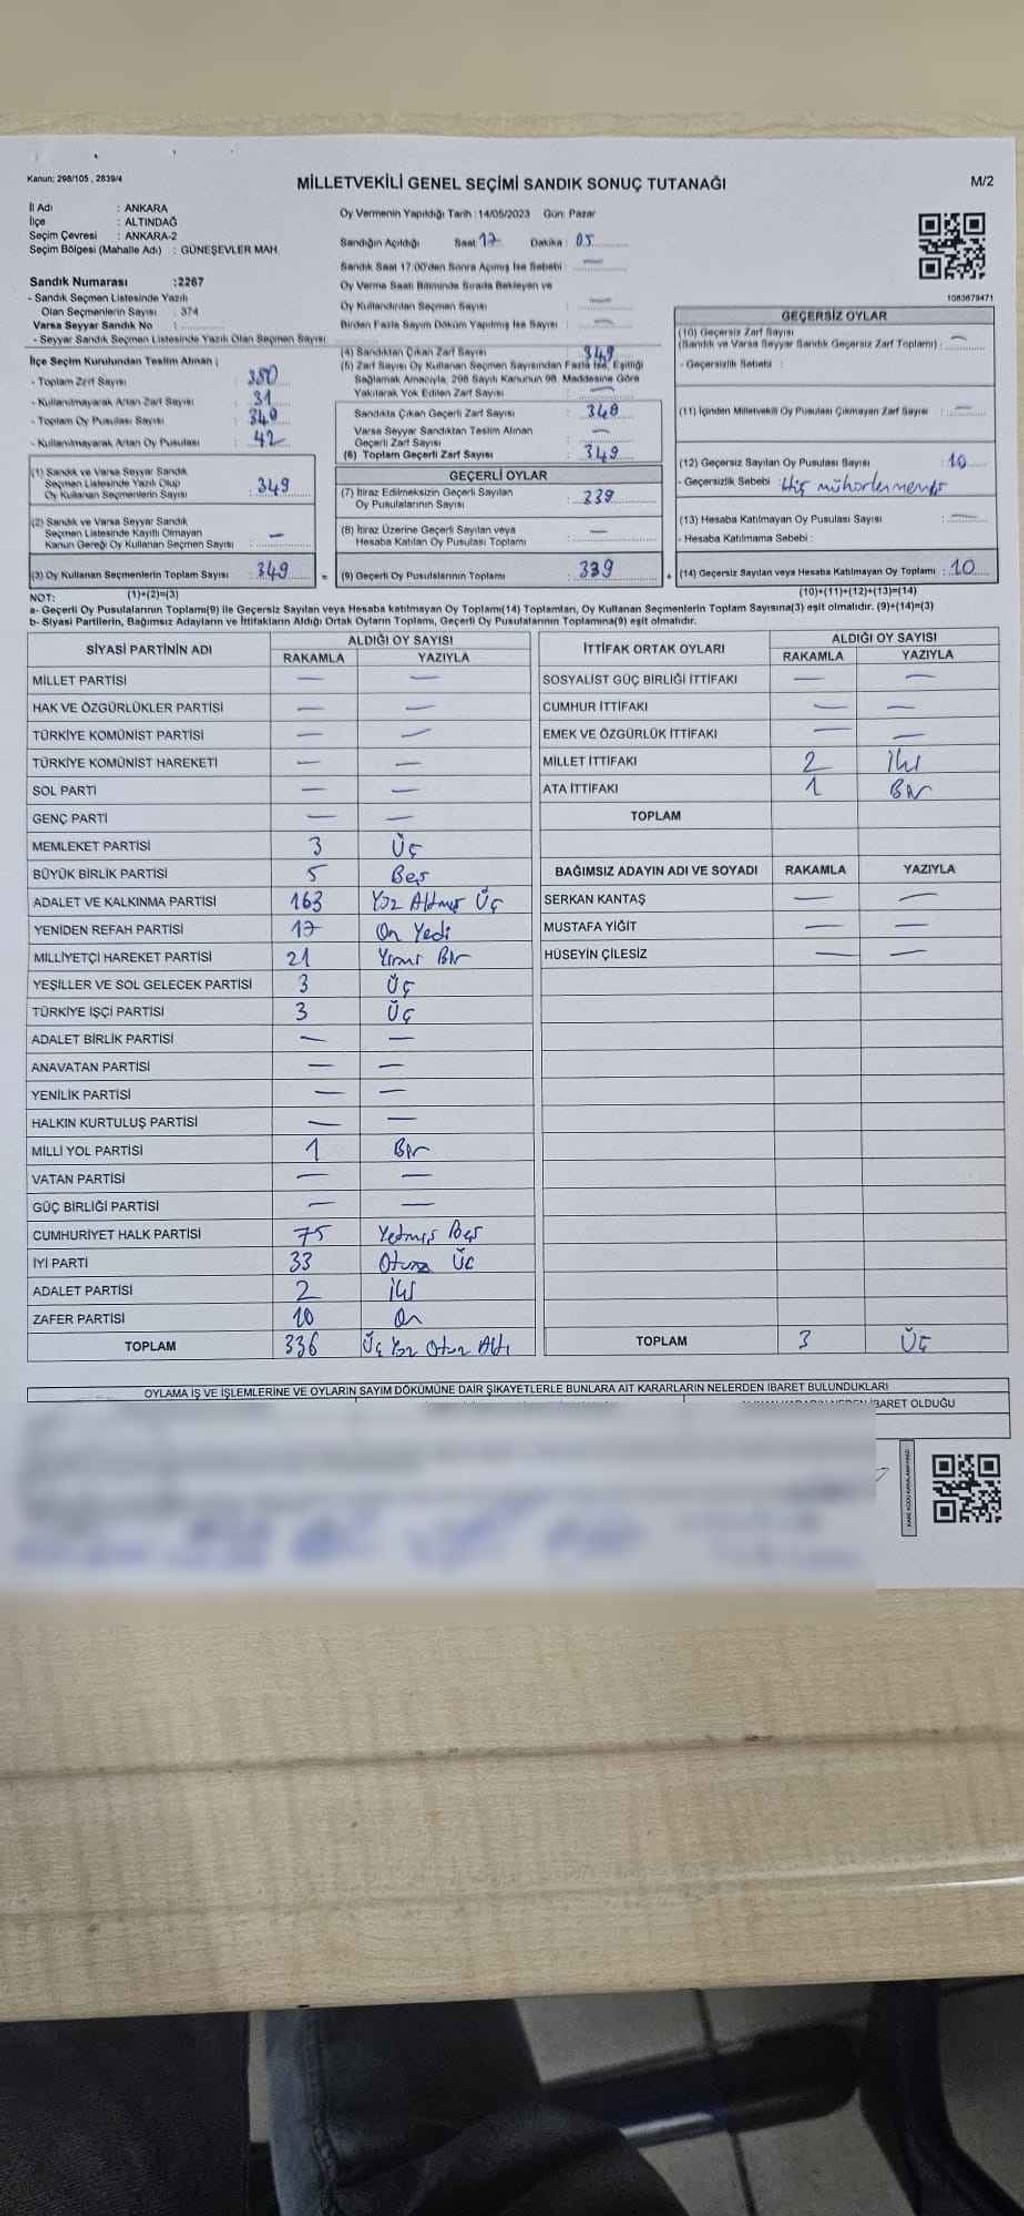 Kanun: 298/105 , 2839/4
MİLLETVEKİLİ GENEL SEÇİMİ SANDIK SONUÇ TUTANAĞI
M/2
İl Adı : ANKARA
İlçe : ALTINDAĞ
Seçim Çevresi : ANKARA-2
Seçim Bölgesi (Mahalle Adı) : GÜNEŞEVLER MAH.
Sandık Numarası :2267
- Sandık Seçmen Listesinde Yazılı
Olan Seçmenlerin Sayısı : 374
Varsa Seyyar Sandık No :
- Seyyar Sandık Seçmen Listesinde Yazılı Olan Seçmen Sayısı
İlçe Seçim Kurulundan Teslim Alınan ;
- Toplam Zarf Sayısı : 380
- Kullanılmayarak Artan Zarf Sayısı : 31
- Toplam Oy Pusulası Sayısı :
- Kullanılmayarak Artan Oy Pusulası : 42
(1) Sandık ve Varsa Seyyar Sandık
Seçmen Listesinde Yazılı Olup
Oy Kullanan Seçmenlerin Sayısı : 349
(2) Sandık ve Varsa Seyyar Sandık
Seçmen Listesinde Kayıtlı Olmayan
Kanun Gereği Oy Kullanan Seçmen Sayısı : —
(3) Oy Kullanan Seçmenlerin Toplam Sayısı : 349
Oy Vermenin Yapıldığı Tarih : 14/05/2023 Gün: Pazar
Sandığın Açıldığı Saat 17 Dakika : 05
Sandık Saat 17:00'den Sonra Açılmış İse Sebebi : —
Oy Verme Saati Bitiminde Sırada Bekleyen ve
Oy Kullandırılan Seçmen Sayısı : —
Birden Fazla Sayım Döküm Yapılmış İse Sayısı : —
(4) Sandıktan Çıkan Zarf Sayısı : 349
(5) Zarf Sayısı Oy Kullanan Seçmen Sayısından Fazla İse, Eşitliği
Sağlamak Amacıyla, 298 Sayılı Kanunun 98. Maddesine Göre
Yakılarak Yok Edilen Zarf Sayısı : —
Sandıkta Çıkan Geçerli Zarf Sayısı :
Varsa Seyyar Sandıktan Teslim Alınan
Geçerli Zarf Sayısı : —
(6) Toplam Geçerli Zarf Sayısı : 349
GEÇERLİ OYLAR
(7) İtiraz Edilmeksizin Geçerli Sayılan
Oy Pusulalarının Sayısı : 339
(8) İtiraz Üzerine Geçerli Sayılan veya
Hesaba Katılan Oy Pusulası Toplamı : —
= (9) Geçerli Oy Pusulalarının Toplamı : 339
1083679471
GEÇERSİZ OYLAR
(10) Geçersiz Zarf Sayısı
(Sandık ve Varsa Seyyar Sandık Geçersiz Zarf Toplamı) : —
- Geçersizlik Sebebi :
(11) İçinden Milletvekili Oy Pusulası Çıkmayan Zarf Sayısı : —
(12) Geçersiz Sayılan Oy Pusulası Sayısı : 10
- Geçersizlik Sebebi : Hiç
(13) Hesaba Katılmayan Oy Pusulası Sayısı : —
- Hesaba Katılmama Sebebi :
+ (14) Geçersiz Sayılan veya Hesaba Katılmayan Oy Toplamı : 10
NOT: (1)+(2)=(3) (10)+(11)+(12)+(13)=(14)
a- Geçerli Oy Pusulalarının Toplamı(9) ile Geçersiz Sayılan veya Hesaba katılmayan Oy Toplamı(14) Toplamları, Oy Kullanan Seçmenlerin Toplam Sayısına(3) eşit olmalıdır. (9)+(14)=(3)
b- Siyasi Partilerin, Bağımsız Adayların ve İttifakların Aldığı Ortak Oyların Toplamı, Geçerli Oy Pusulalarının Toplamına(9) eşit olmalıdır.
SİYASİ PARTİNİN ADI ALDIĞI OY SAYISI
RAKAMLA YAZIYLA
MİLLET PARTİSİ — —
HAK VE ÖZGÜRLÜKLER PARTİSİ — —
TÜRKİYE KOMÜNİST PARTİSİ — —
TÜRKİYE KOMÜNİST HAREKETİ — —
SOL PARTİ — —
GENÇ PARTİ — —
MEMLEKET PARTİSİ 3 Üç
BÜYÜK BİRLİK PARTİSİ 5 Beş
ADALET VE KALKINMA PARTİSİ 163 Yüz Altmış Üç
YENİDEN REFAH PARTİSİ 17 On Yedi
MİLLİYETÇİ HAREKET PARTİSİ 21 Yirmi Bir
YEŞİLLER VE SOL GELECEK PARTİSİ 3 Üç
TÜRKİYE İŞÇİ PARTİSİ 3 Üç
ADALET BİRLİK PARTİSİ — —
ANAVATAN PARTİSİ — —
YENİLİK PARTİSİ — —
HALKIN KURTULUŞ PARTİSİ — —
MİLLİ YOL PARTİSİ 1 Bir
VATAN PARTİSİ — —
GÜÇ BİRLİĞİ PARTİSİ — —
CUMHURİYET HALK PARTİSİ 75 Yetmiş Beş
İYİ PARTİ 33 Otuz Üç
ADALET PARTİSİ 2 İki
ZAFER PARTİSİ 10 On
TOPLAM 336 Üç Yüz Otuz Altı
İTTİFAK ORTAK OYLARI ALDIĞI OY SAYISI
RAKAMLA YAZIYLA
SOSYALİST GÜÇ BİRLİĞİ İTTİFAKI — —
CUMHUR İTTİFAKI — —
EMEK VE ÖZGÜRLÜK İTTİFAKI — —
MİLLET İTTİFAKI 2 İki
ATA İTTİFAKI 1 Bir
TOPLAM
BAĞIMSIZ ADAYIN ADI VE SOYADI RAKAMLA YAZIYLA
SERKAN KANTAŞ — —
MUSTAFA YİĞİT — —
HÜSEYİN ÇİLESİZ — —
TOPLAM 3 Üç
OYLAMA İŞ VE İŞLEMLERİNE VE OYLARIN SAYIM DÖKÜMÜNE DAİR ŞİKAYETLERLE BUNLARA AİT KARARLARIN NELERDEN İBARET BULUNDUKLARI
İBARET OLDUĞU